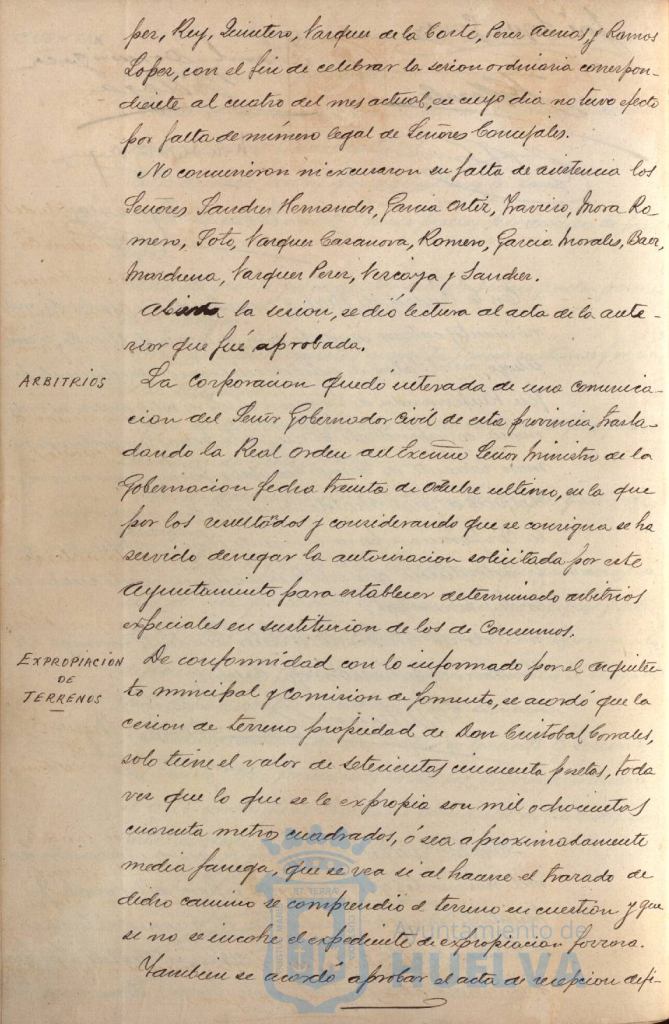 per, Rey, Quintero, Varquer de la Corte, Perer Arenas y Ramos
Loper, con el fin de celebrar la sesion ordinaria correspon-
diente al cuatro del mes actual, en cuyo dia no tuvo efecto
por falta de número legal de Señores Concejales.
No concurrieron ni excusaron su falta de asistencia los
Señores Sancher Hernander, Garcia Ortir, Travieso, Mora Ro-
mero, Soto, Varquer Casanova, Romero, Garcia Morales, Baer,
Marchena, Varquer Perer, Vercaya y Sancher.
Abierta la sesion, se dió lectura al acta de la ante-
rior que fué aprobada.
ARBITRIOS
La corporacion quedó enterada de una comunica-
cion del Señor Gobernador Civil de esta provincia, trasla-
dando la Real Orden del Excmo Señor Ministro de la
Gobernacion fecha treinta de Octubre ultimo, en la que
por los resultandos y considerando que se consigna se ha
servido denegar la autorizacion solicitada por este
Ayuntamiento para establecer determinado arbitrios
especiales en sustitucion de los de Consumos.
EXPROPIACION
DE
TERRENOS
De conformidad con lo informado por el arquitec-
to municipal y Comision de fomento, se acordó que la
cesion de terreno propiedad de Don Cristobal Corrales,
solo tiene el valor de setecientas cincuenta pesetas, toda
ver que lo que se le expropia son mil ochocientos
cuarenta metros cuadrados, ó sea aproximadamente
media fanega, que se vea si al hacerse el trazado de
dicho camino se comprendio el terreno en cuestion y que
si no se incohe el expediente de expropiacion forzosa.
Tambien se acordó aprobar el acta de recepcion defi-
Ayuntamiento de
HUELVA